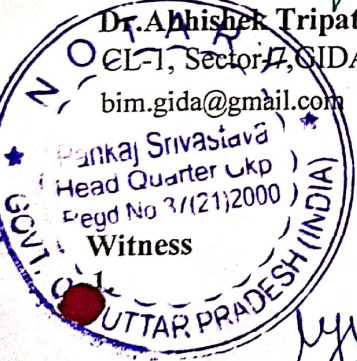 Dr.Abhishek Tripat
CL-1, Sector-17,GIDA
bim.gida@gmail.com
NOTAR
Pankaj Srivastava
Head Quarter Gkp
Regd No 37(21)2000
GOVT. O
UTTAR PRADESH (INDIA)
Witness
1.